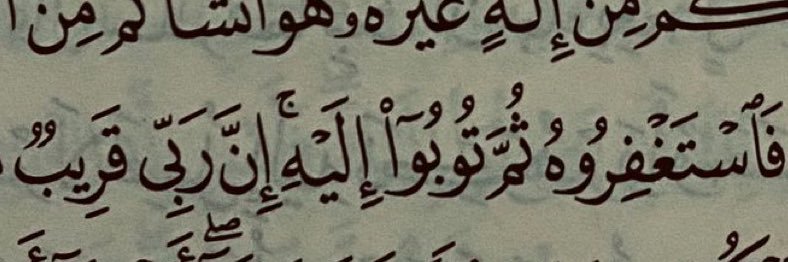 كُم مِّنْ إِلَٰهٍ غَيْرُهُۥ هُوَ أَنشَأَكُم مِّنَ
فَٱسْتَغْفِرُوهُ ثُمَّ تُوبُوٓا۟ إِلَيْهِ ۚ إِنَّ رَبِّى قَرِيبٌ